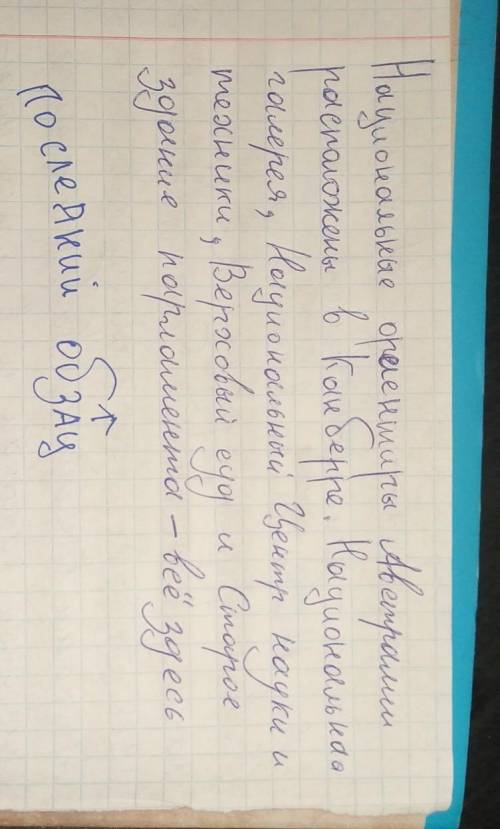 Национальные ориентиры Австралии
расположены в Канберре. Национальная
галерея, Национальный Центр науки и
техники, Верховый суд и Старое
здание парламента – всё здесь
последний обзац